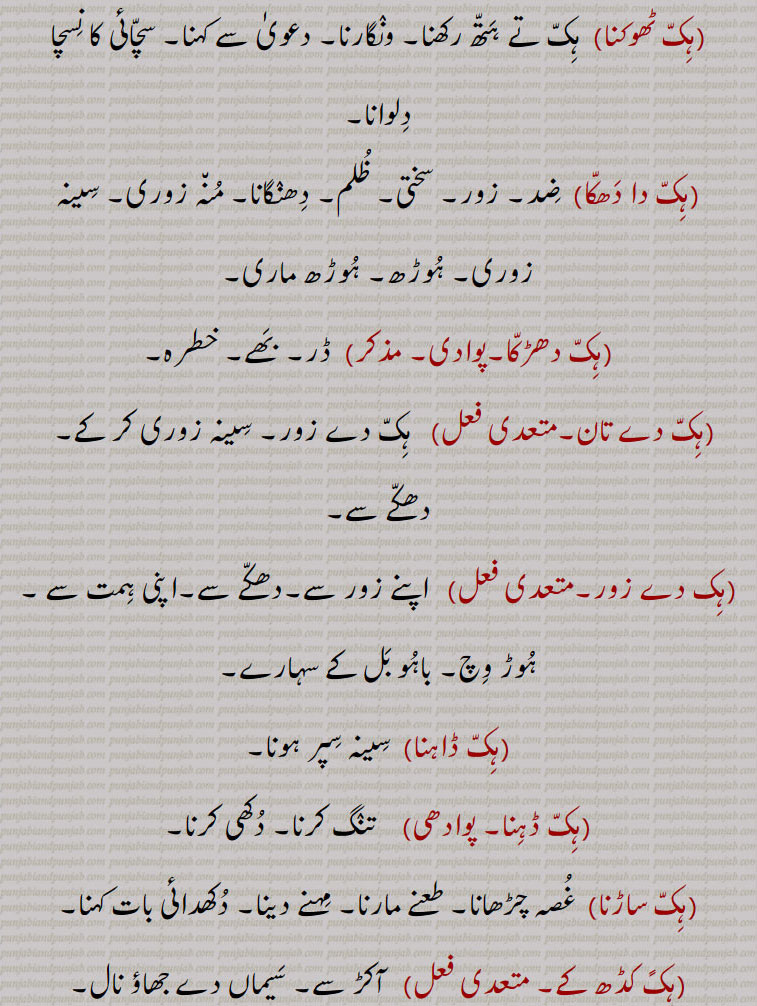 (ہِکّ ٹھوکنا) ہِکّ تے ہَتھّ رکھنا۔ ونْگارنا۔ دعویٰ سے کہنا۔ سچّائی کا نِسچا
دِلوانا۔
(ہِکّ دا دَھکّا) ضِد۔ زور۔ سختی۔ ظُلم۔ دِھنْگانا۔ مُنّہ زوری۔ سِینہ
زوری۔ ہُوڑھ۔ ہُوڑھ ماری۔
(ہِکّ دھڑکّا۔پوادی۔ مذکر) ڈر۔ بَھے۔ خطرہ۔
(ہِکّ دے تان۔متعدی فعل) ہِکّ دے زور۔ سِینہ زوری کر کے۔
دھکّے سے۔
(ہِک دے زور۔متعدی فعل) اپنے زور سے۔دھکّے سے۔اپنی ہِمت سے ۔
ہُوڑ وِچ۔ باہُو بَل کے سہارے۔
(ہِکّ ڈاہنا) سِینہ سِپر ہونا۔
(ہِکّ ڈہِنا۔ پوادھی) تنْگ کرنا۔ دُکھی کرنا۔
(ہِکّ ساڑنا) غُصہ چڑھانا۔ طعنے مارنا۔ مِہنے دینا۔ دُکھدائی بات کہنا۔
(ہِکّ کڈھ کے۔ متعدی فعل) آکڑ سے۔ سَیماں دے جھاؤ نال۔